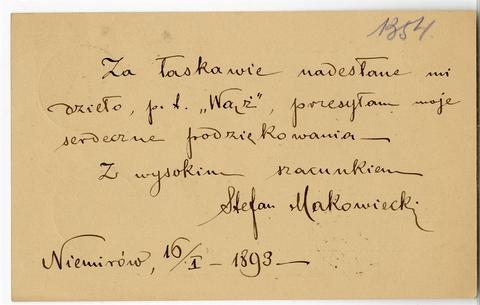 1354.
Za łaskawie nadesłane mi
dzieło, p. t. „Wąż", przesyłam moje
serdeczne podziękowania —
Z wysokim szacunkiem
Stefan Makowiecki
Niemirów, 16/I – 1893 —